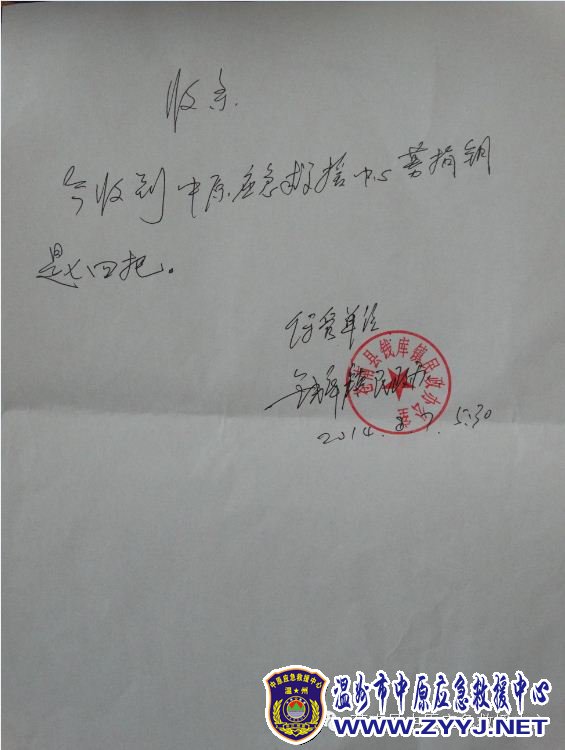 收条
今收到中原应急救援中心募捐钥
匙四把。
保管单位
钱库镇民政办
苍南县钱库镇民政办公室
2014.8.7. 5:30
中原应急救援中心
温★州
温州市中原应急救援中心
WWW.ZYYJ.NET